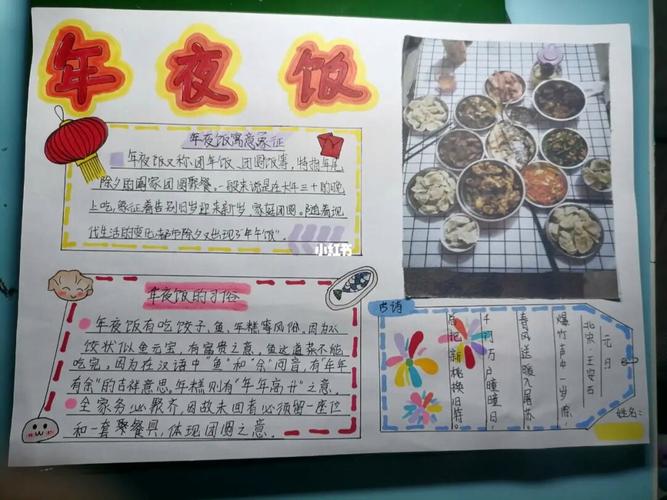 年夜饭
年夜饭寓意象征
年夜饭又称、团年饭、团圆饭等，特指年尾
除夕的阖家团圆聚餐，一般来说是在大年三十的晚
上吃，象征着告别旧岁迎来新岁，家庭团圆。随着现
代生活的变化，都市中除夕又出现了"年午饭"。
小红书
年夜饭的习俗
年夜饭有吃饺子、鱼、年糕等风俗，因为水
饺状似金元宝，有富贵之意。鱼这道菜不能
吃完，因为在汉语中"鱼"和"余"同音，有"年年
有余"的吉祥意思。年糕则有"年年高升"之意。
全家务必聚齐，因故未回者必须留一座位
和一套聚餐具，体现团圆之意。
古诗
元日
北宋：王安石
爆竹声中一岁除，
春风送暖入屠苏。
千门万户曈曈日，
总把新桃换旧符。
姓名：